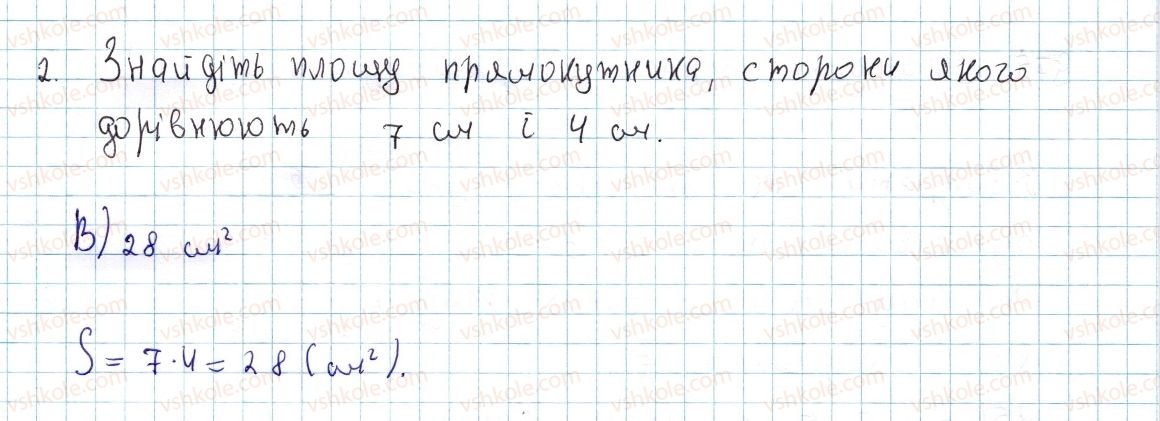 2. Знайдіть площу прямокутника, сторони якого
дорівнюють 7 см і 4 см.
В) 28 см²
S = 7·4 = 28 (см²).